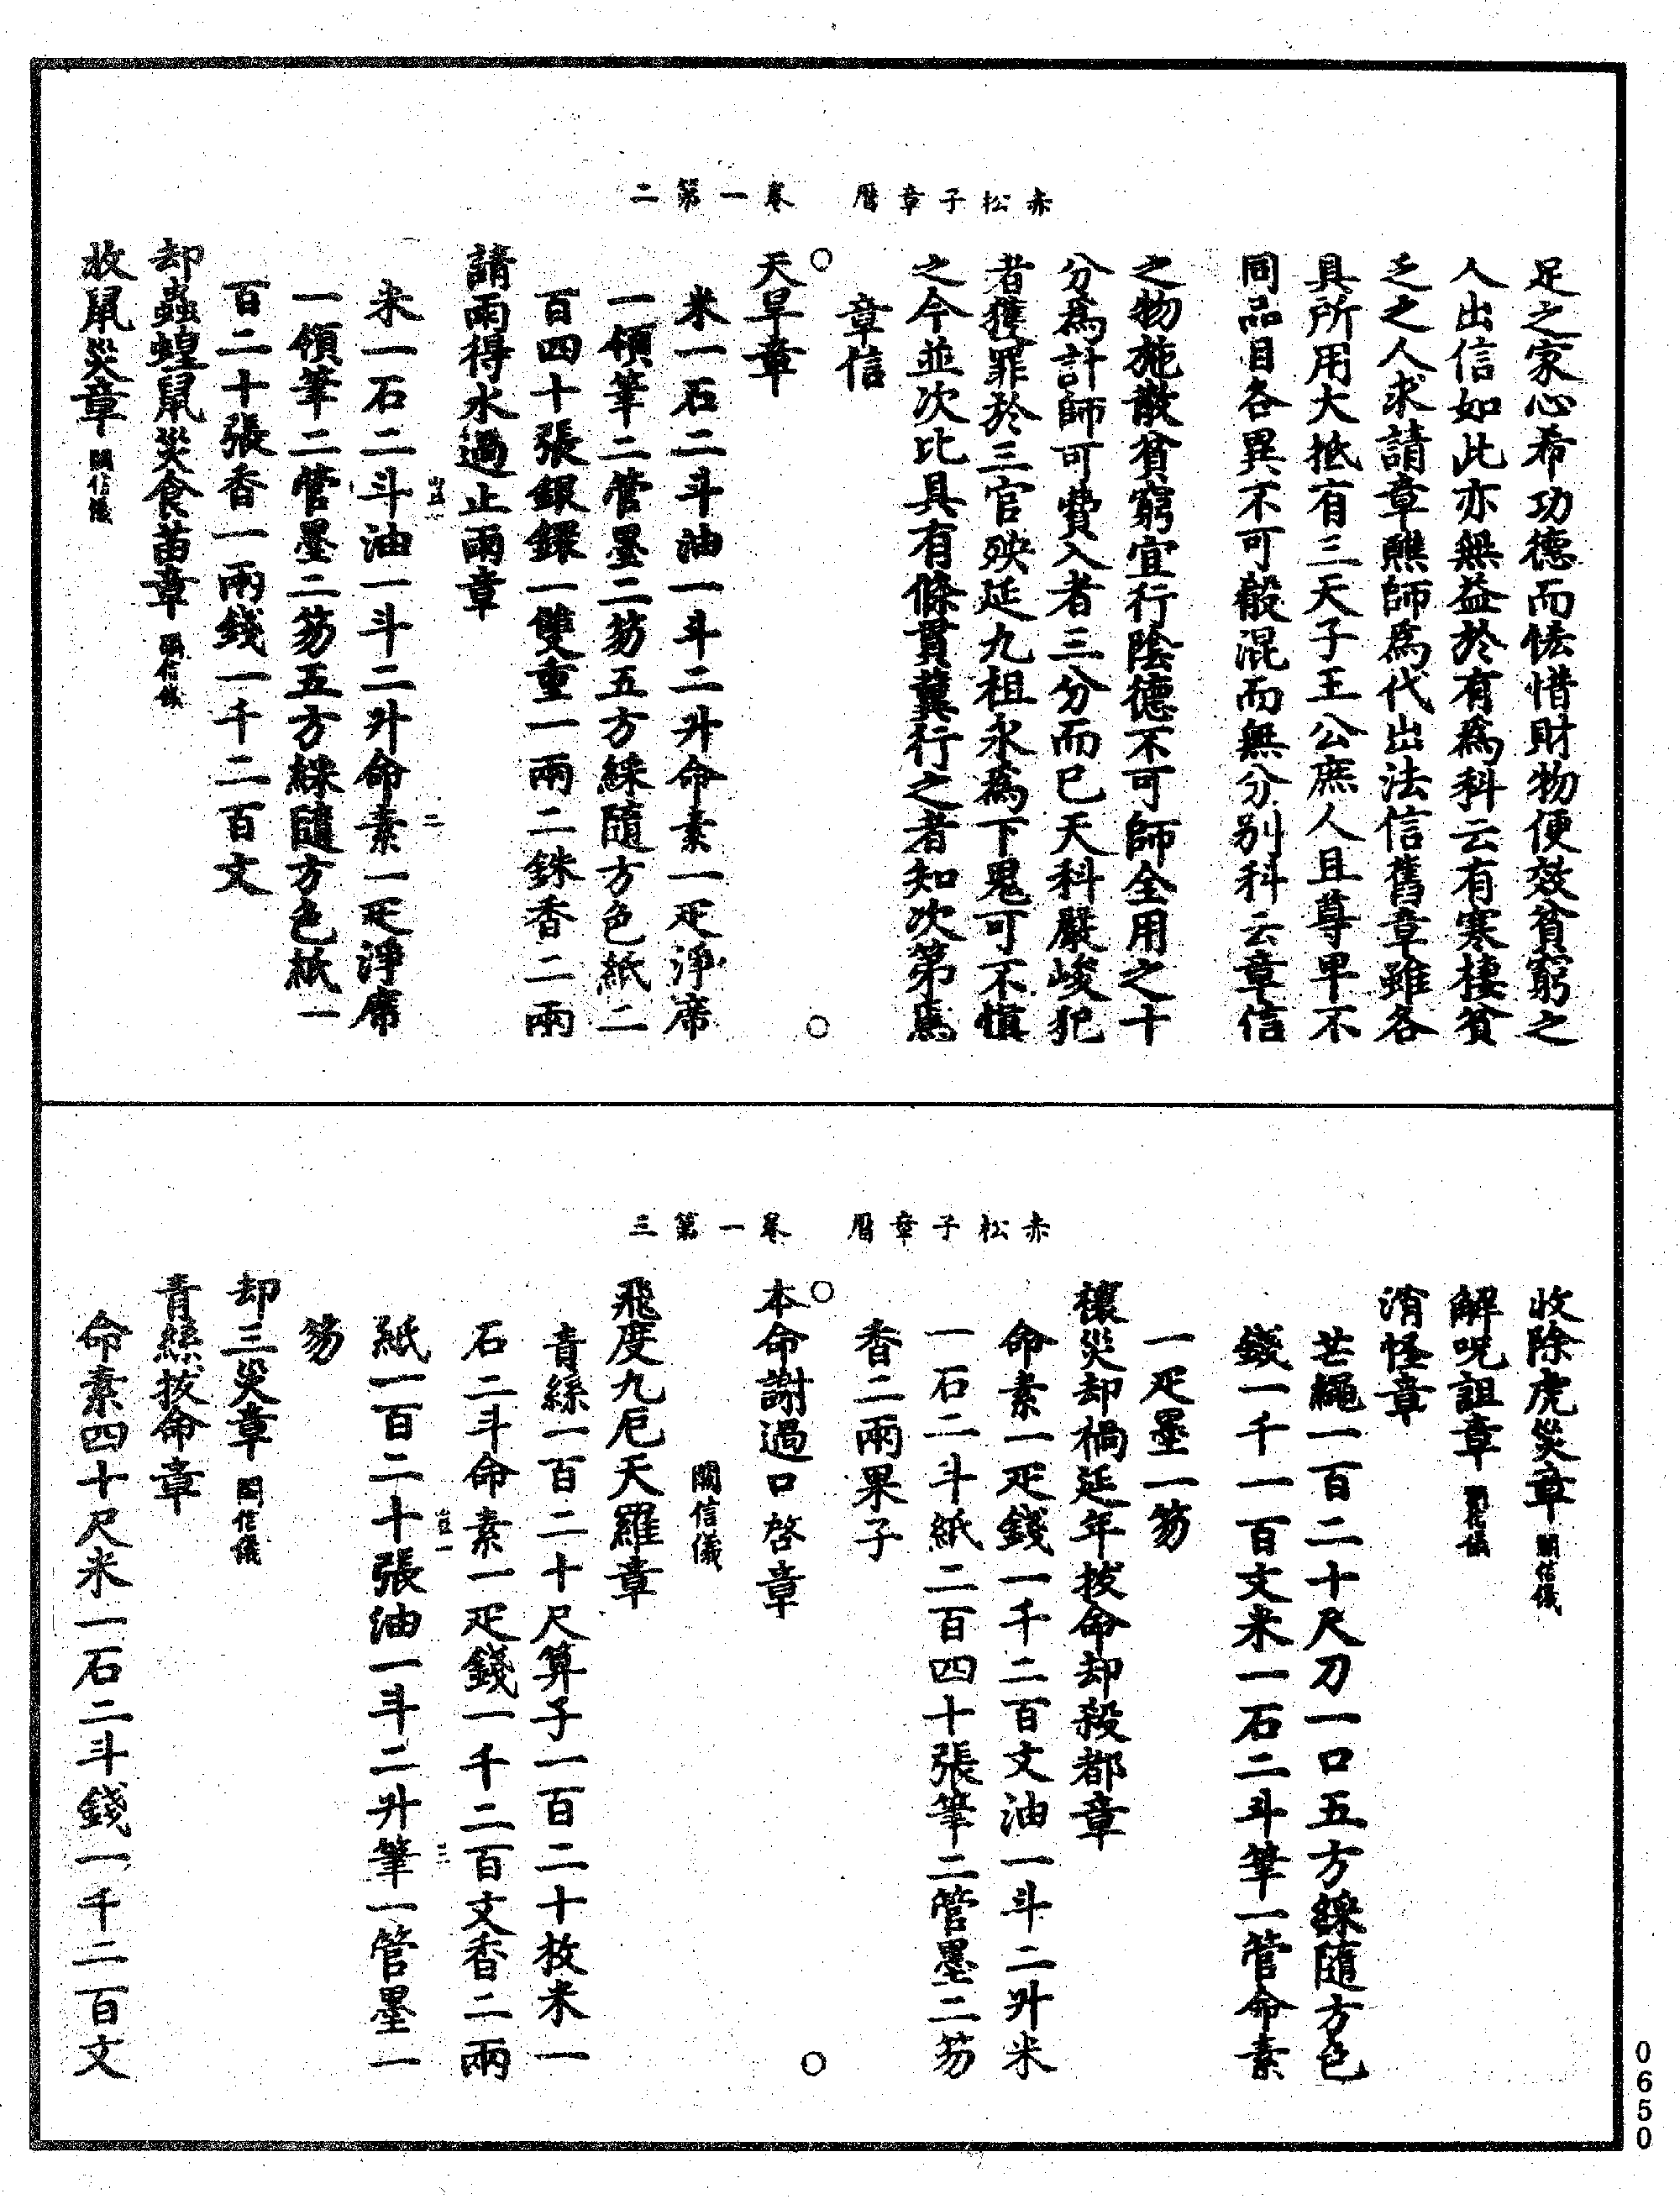 赤松子章曆　卷一第二
足之家心希功德而恡惜財物便效貧窮之
人出信如此亦無益於有爲科云有寒棲貧
乏之人求請章醮師爲代出法信舊章雖各
具所用大抵有三天子王公庶人且尊卑不
同品目各異不可殽混而無分别科云章信
之物施散貧窮宜行陰德不可師全用之十
分爲計師可費入者三分而已天科嚴峻犯
者獲罪於三官殃延九祖永爲下鬼可不慎
之今並次比具有條貫冀行之者知次第焉
章信
天旱章
米一石二斗油一斗二升命素一疋淨席
一領筆二管墨二笏五方綵隨方色紙二
百四十張銀鐶一雙重一兩二銖香二兩
請雨得水過止雨章
米一石二斗油一斗二升命素一疋淨席
一領筆二管墨二笏五方綵隨方色紙一
百二十張香一兩錢一千二百文
却蟲蝗鼠災食苗章 闕信儀
收鼠災章 闕信儀
赤松子章曆　卷一第三
收除虎災章 闕信儀
解呪詛章 闕信儀
消怪章
芒繩一百二十尺刀一口五方綵隨方色
錢一千一百文米一石二斗筆一管命素
一疋墨一笏
禳災却禍延年拔命却殺都章
命素一疋錢一千二百文油一斗二升米
一石二斗紙二百四十張筆二管墨二笏
香二兩果子
本命謝過口啓章
闕信儀
飛度九厄天羅章
青絲一百二十尺算子一百二十枚米一
石二斗命素一疋錢一千二百文香二兩
紙一百二十張油一斗二升筆一管墨一
笏
却三災章 闕信儀
青絲拔命章
命素四十尺米一石二斗錢一千二百文
0650